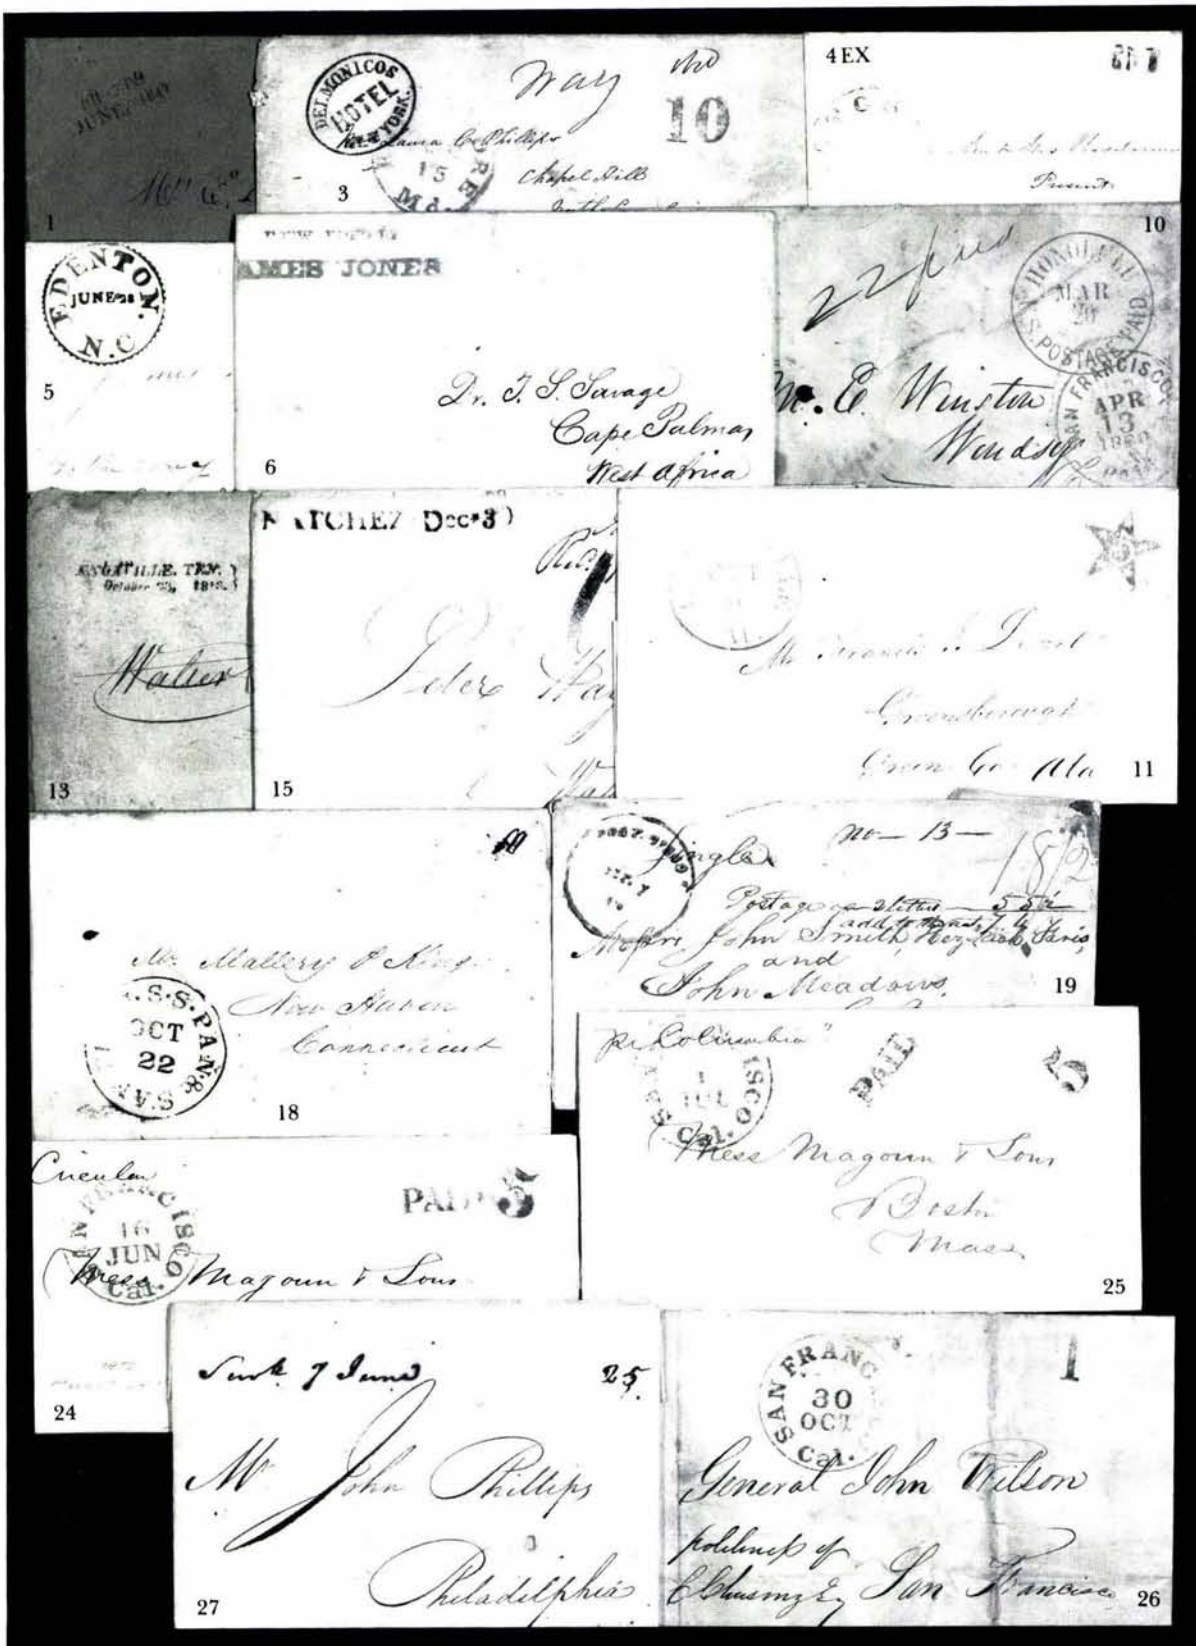 JUNE
1
DELMONICOS
HOTEL
NEW YORK.
Way
10
Laura C. Phillips
Chapel Hill
15
MD.
3
4EX
Present
EDENTON.
JUNE 28
N.C
5
AMES JONES
Dr. T. S. Savage
Cape Palmas
West Africa
6
10
22
HONOLULU
MAR
20
U.S. POSTAGE PAID
SAN FRANCISCO
APR
13
1860
E. Winston
Windsor
KNOXVILLE. TEN.
October
Walter
13
NATCHEZ Dec 3
Peter
15
5
Greensborough
Green Co Ala
11
Mr. Mallery & King
New Haven
Connecticut
U.S.S. PAN. & SAN
OCT
22
18
Single
no - 13 -
18 1/2
Postage on 2 letters
Messrs John Smith, Hezekiah Faris,
and
John Meadows,
19
pr Columbia"
PAID
5
SAN FRANCISCO
1
JUL
Cal.
Mess Magoun & Sons
Boston
Mass
25
Circular
SAN FRANCISCO
16
JUN
Cal.
PAID 3
Mess Magoun & Sons
24
7 June
25
Mr John Phillips
Philadelphia
27
SAN FRANCISCO
30
OCT
Cal.
1
General John Wilson
San Francisco
26